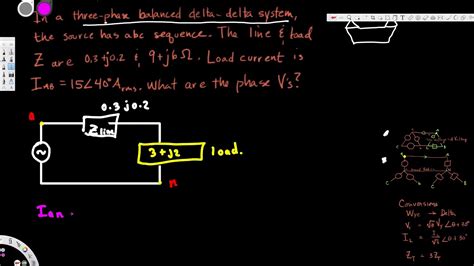 In a three-phase balanced delta-delta system,
the source has abc sequence. The line & load
Z are 0.3+j0.2 & 9+j6Ω. Load current is
IAB = 15∠40° Arms. What are the phase V's?
0.3 j0.2
a
Zline
3+j2 load.
n
Ian
Conversions
Wye → Delta
ZT = 3ZY